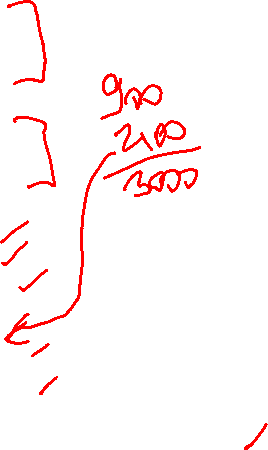 900
2100
3000